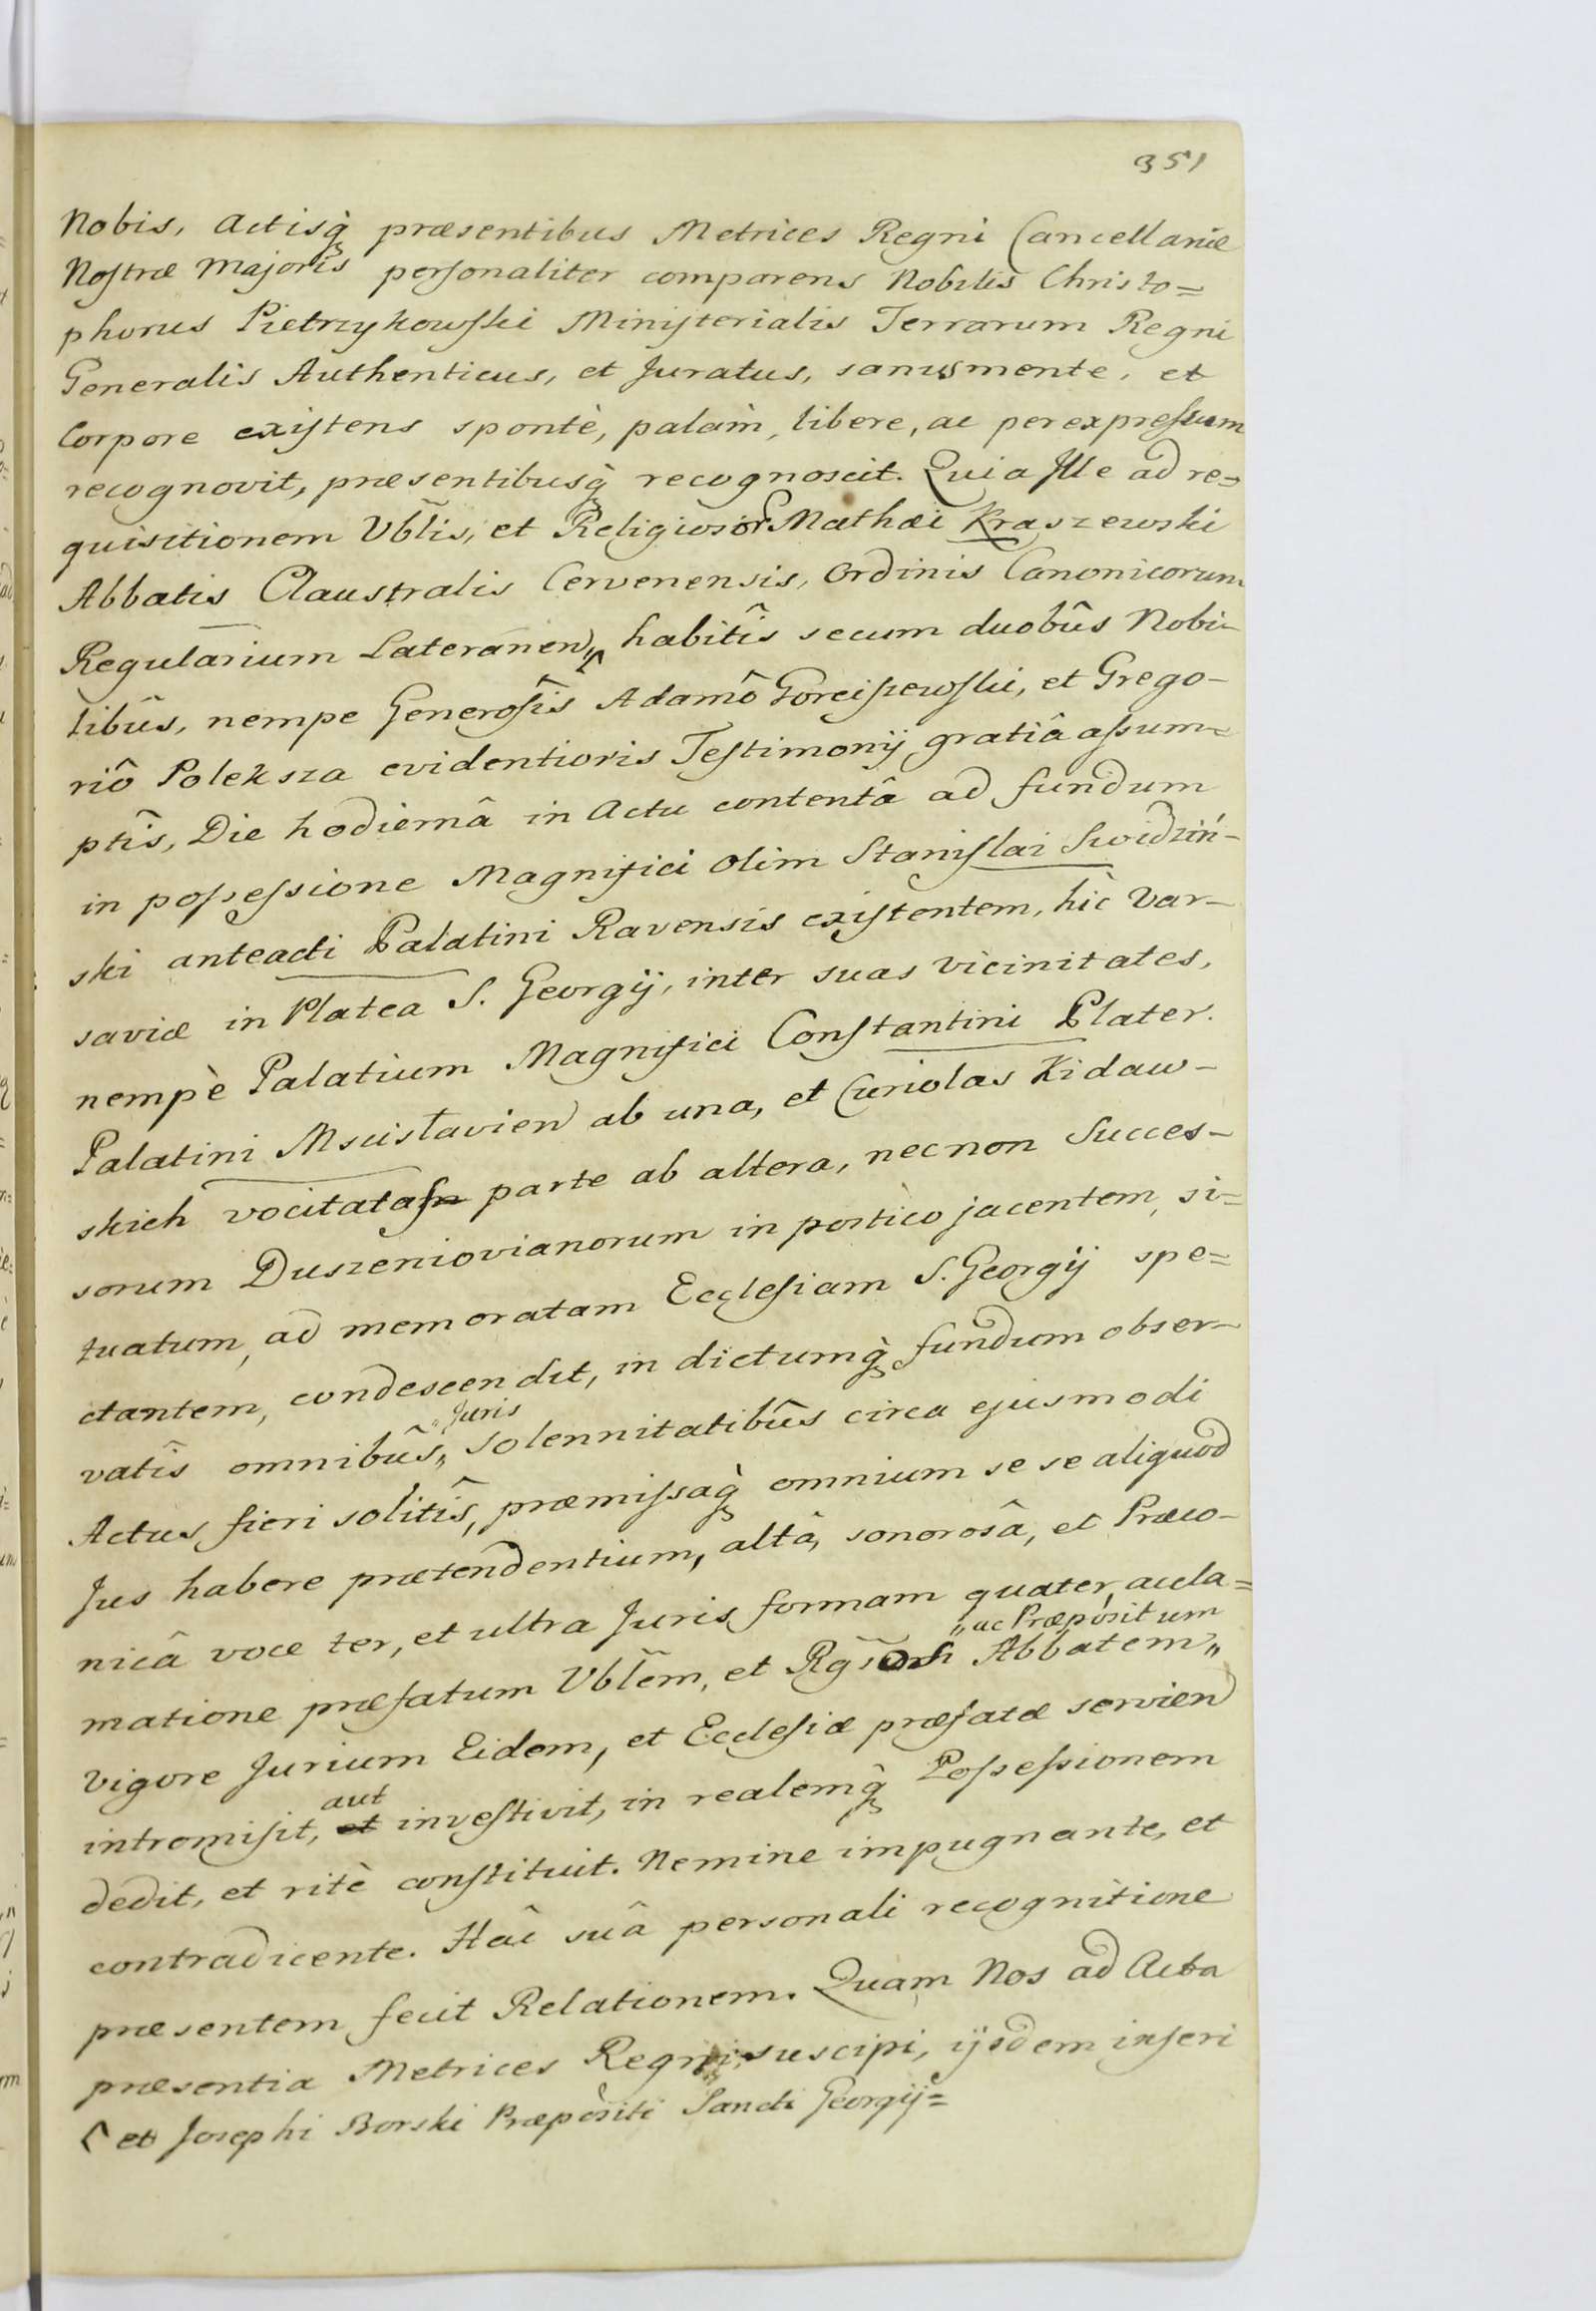 351
Nobis, Actisq̀ præsentibus Metrices Regni Cancellariæ
Nostræ Majoris personaliter comparens Nobilis Christo=
phorus Pietrzykowski Ministerialis Terrarum Regni
Generalis Authenticus, et Juratus, sanus mente, et
Corpore existens spontè, palàm, libere, ac per expressum
recognovit, præsentibusq̀ recognoscit. Quia Ille ad re=
quisitionem Vblis, et Religiosor Mathæi Kraszewski
Abbatis Claustralis Cervenensis, Ordinis Canonicorum
Regularium Lateranen, habitîs secum duobûs Nobi-
libûs, nempe Generosîs Adamô Gorciszewski, et Grego-
riô Poleksza evidentioris Testimonij gratiâ assum=
ptîs, Die hodiernâ in Actu contentâ ad fundum
in possessione Magnifici olim Stanislai Swidziń-
ski anteacti Palatini Ravensis existentem, hìc Var-
saviæ in Platea S. Georgij, inter suas vicinitates,
nempè Palatium Magnifici Constantini Plater.
Palatini Mscislavien ab una, et Curiolas Kidaw-
skich vocitatas parte ab altera, necnon Succes-
sorum Duszeniovianorum in portico jacentem, si=
tuatum, ad memoratam Ecclesiam S. Georgij spe=
ctantem, condescendit, in dictumq̀ fundum obser-
vatîs omnibûs „Juris„ solennitatibûs circa ejusmodi
Actus fieri solitîs, præmissaq̀ omnium se se aliquod
Jus habere prætendentium, altâ, sonorosâ, et Præco-
nicâ voce ter, et ultra Juris formam quater, accla=
matione præfatum Vblem, et Rgsor Abbatem „ac Præpositum„
vigore Jurium Eidem, et Ecclesiæ præfatæ servien
intromisit, et aut investivit, in realemq̀ Possessionem
dedit, et ritè constituit. Nemine impugnante, et
contradicente. Hâc suâ personali recognitione
præsentem fecit Relationem. Quam Nos ad Acta
præsentia Metrices Regni suscipi, ijsdem inseri
et Josephi Borski Præpositi Sancti Georgij=